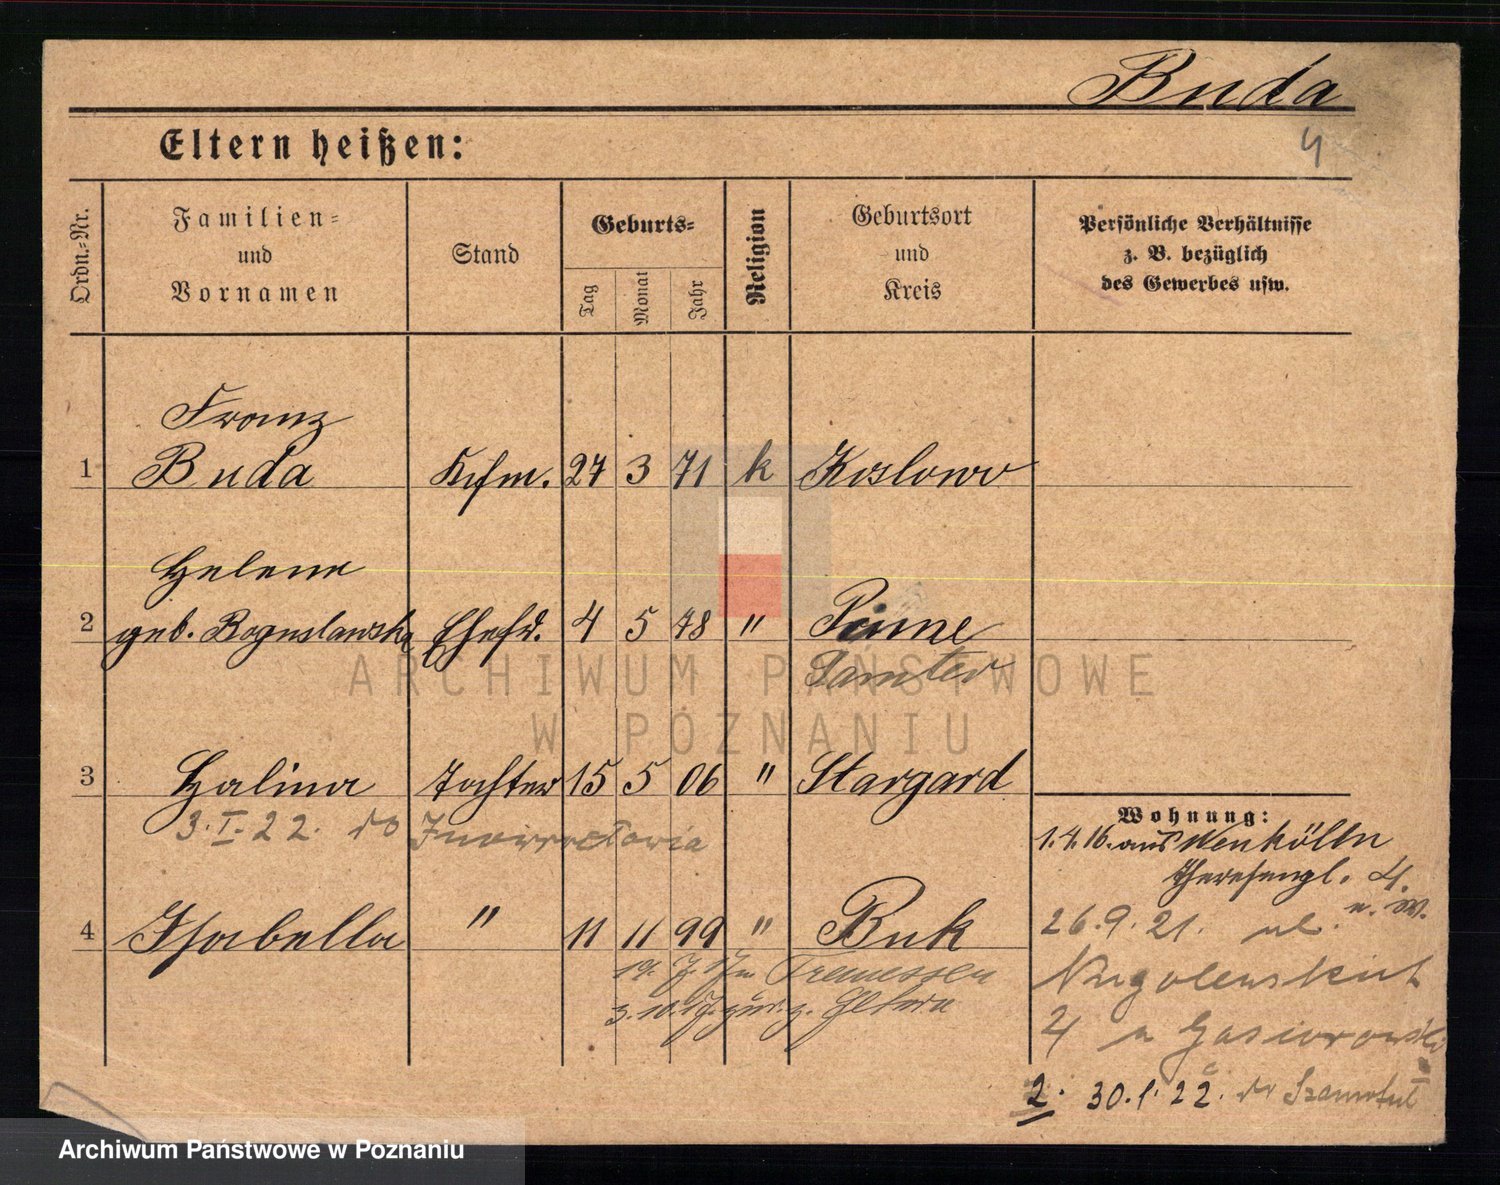 Buda
4
Eltern heißen:
Ordn.-Nr.
Familien-
und
Vornamen
Stand
Geburts-
Tag
Monat
Jahr
Religion
Geburtsort
und
Kreis
Persönliche Verhältnisse
z. B. bezüglich
des Gewerbes usw.
Franz
1 Buda Kfm. 27 3 71 k Koslowo
Helene
2 geb. Boguslawska Ehefr. 4 5 78 " Pinne
Samter
3 Halina Tochter 15 5 06 " Stargard
3. I. 22. do
Wohnung:
1.4.16. aus Neukölln
4 Isabella " 11 11 99 " Buk
Tremessen
3.10.17. zur. z. Eltern
26.9.21. ul.
4 u Gąsiorowski
2. 30.1.22. do Szamotuł
ARCHIWUM PAŃSTWOWE
W POZNANIU
Archiwum Państwowe w Poznaniu